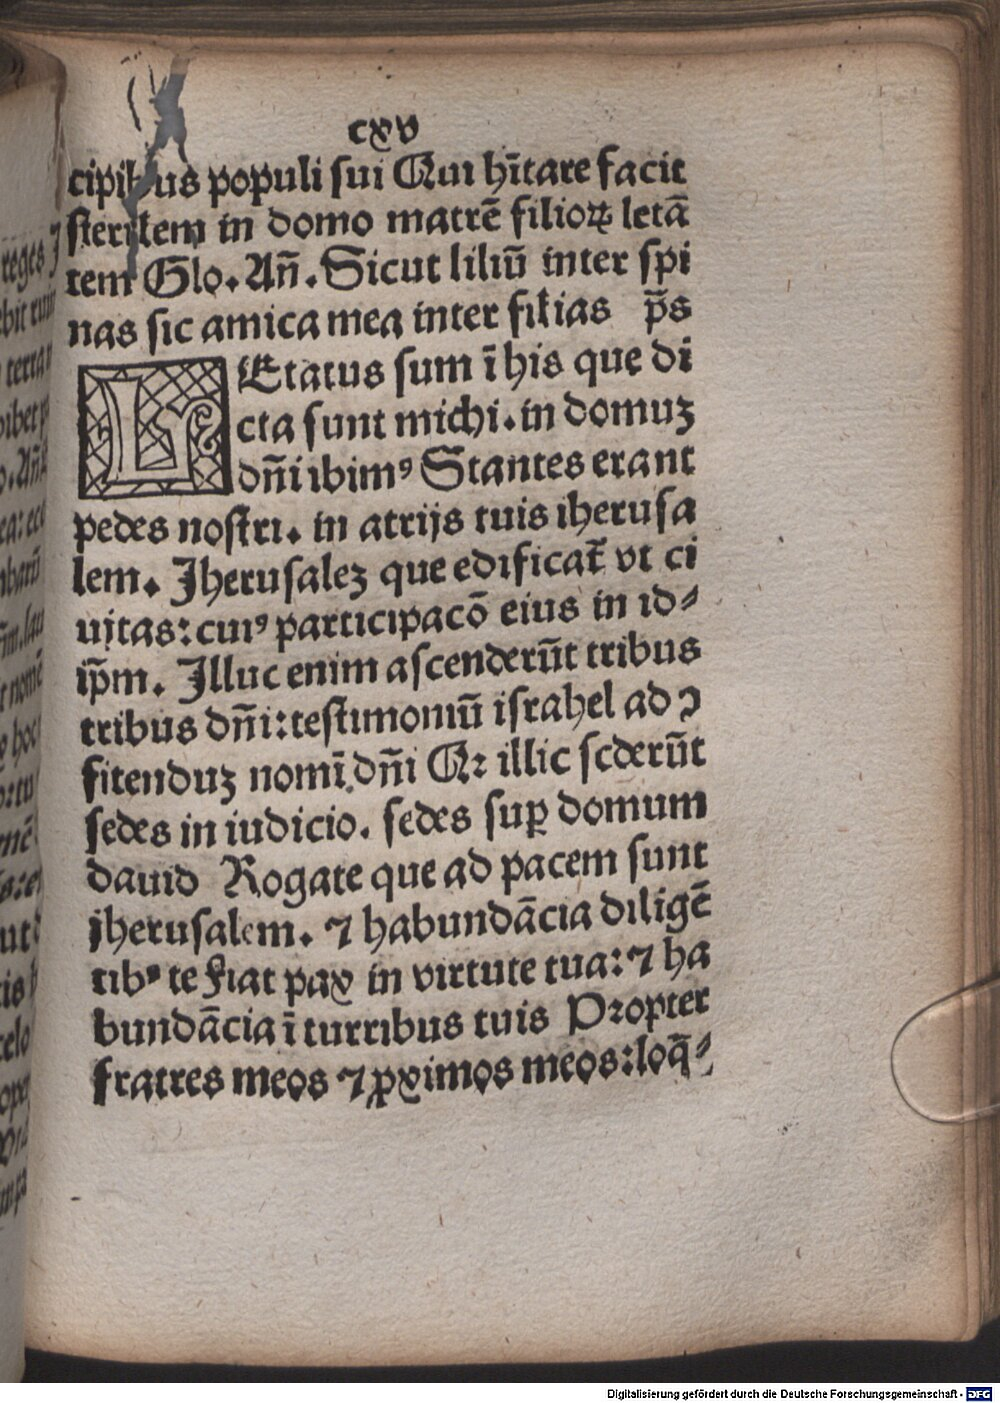 cxv
cipibus populi sui Qui hi̅tare facit
sterilem in domo matre̅ filioꝝ leta̅
tem Glo. An̅. Sicut liliu̅ inter spi
nas sic amica mea inter filias p̅s
LEtatus sum i̅ his que di
cta sunt michi. in domuʒ
dn̅i ibimꝰ Stantes erant
pedes nostri. in atrijs tuis iherusa
lem. Jherusaleʒ que edificat̅ vt ci
uitas: cuiꝰ participaco̅ eius in id⸗
ip̅m. Illuc enim ascenderu̅t tribus
tribus dn̅i: testimoniu̅ israhel ad ↄ
fitenduʒ nomi̅ dn̅i Qꝛ illic sederu̅t
sedes in iudicio. sedes suꝑ domum
dauid Rogate que ad pacem sunt
iherusalem. ⁊ habunda̅cia dilige̅
tibꝰ te Fiat pax in virtute tua: ⁊ ha
bunda̅cia i̅ turribus tuis Propter
fratres meos ⁊ ꝓximos meos: loq̅⸗
Digitalisierung gefördert durch die Deutsche Forschungsgemeinschaft - DFG